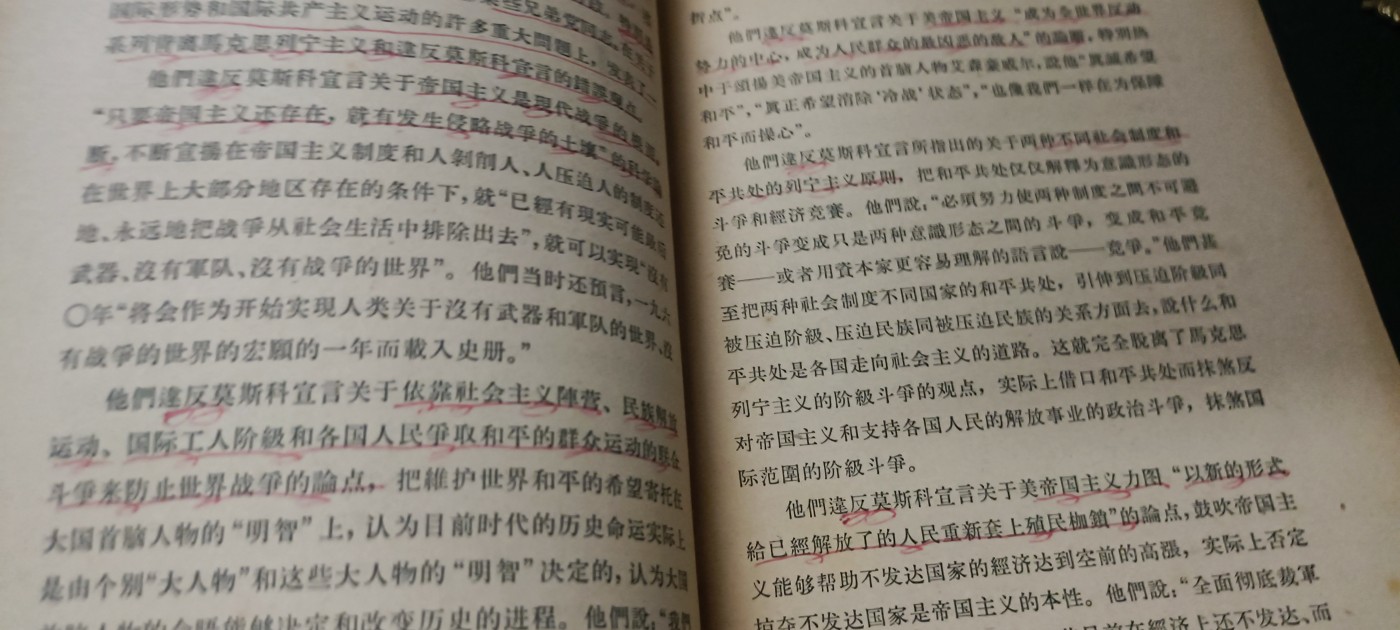 国际形势和国际共产主义运动的許多重大問題上,发表了一
系列背离馬克思列宁主义和違反莫斯科宣言的錯誤观点。
他們違反莫斯科宣言关于帝国主义是現代战爭的根源,
“只要帝国主义还存在,就有发生侵略战爭的土壤”的科学論
断,不断宣揚在帝国主义制度和人剝削人、人压迫人的制度还
在世界上大部分地区存在的条件下,就“已經有現实可能最后
地、永远地把战爭从社会生活中排除出去”,就可以实現“沒有
武器、沒有軍队、沒有战爭的世界”。他們当时还預言,一九六
〇年“将会作为开始实現人类关于沒有武器和軍队的世界、沒
有战爭的世界的宏願的一年而載入史册。”
他們違反莫斯科宣言关于依靠社会主义陣营、民族解放
运动、国际工人阶級和各国人民爭取和平的群众运动的联合
斗爭来防止世界战爭的論点,把維护世界和平的希望寄托在
大国首脑人物的“明智”上,认为目前时代的历史命运实际上
是由个别“大人物”和这些大人物的“明智”决定的,认为大国
决定和改变历史的进程。他們說:“我們
折点”。
他們違反莫斯科宣言关于美帝国主义“成为全世界反动
勢力的中心,成为人民群众的最凶恶的敌人”的論断,特別热
中于頌揚美帝国主义的首脑人物艾森豪威尔,說他“眞誠希望
和平”,“眞正希望消除‘冷战’状态”,“也像我們一样在为保障
和平而操心”。
他們違反莫斯科宣言所指出的关于两种不同社会制度和
平共处的列宁主义原則,把和平共处仅仅解釋为意識形态的
斗爭和經济竞賽。他們說:“必須努力使两种制度之間不可避
免的斗爭变成只是两种意識形态之間的斗爭,变成和平竞
賽——或者用資本家更容易理解的語言說——竞爭。”他們甚
至把两种社会制度不同国家的和平共处,引伸到压迫阶級同
被压迫阶級、压迫民族同被压迫民族的关系方面去,說什么和
平共处是各国走向社会主义的道路。这就完全脫离了馬克思
列宁主义的阶級斗爭的观点,实际上借口和平共处而抹煞反
对帝国主义和支持各国人民的解放事业的政治斗爭,抹煞国
际范圍的阶級斗爭。
他們違反莫斯科宣言关于美帝国主义力图“以新的形式
給已經解放了的人民重新套上殖民枷鎖”的論点,鼓吹帝国主
义能够帮助不发达国家的經济达到空前的高漲,实际上否定
掠夺不发达国家是帝国主义的本性。他們說:“全面彻底裁軍
目前在經济上还不发达、而